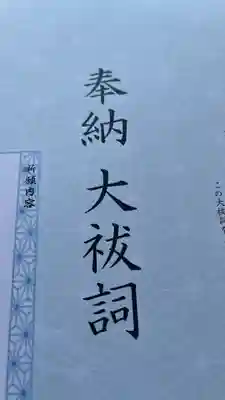 この大祓詞
奉納 大祓詞
祈願内容